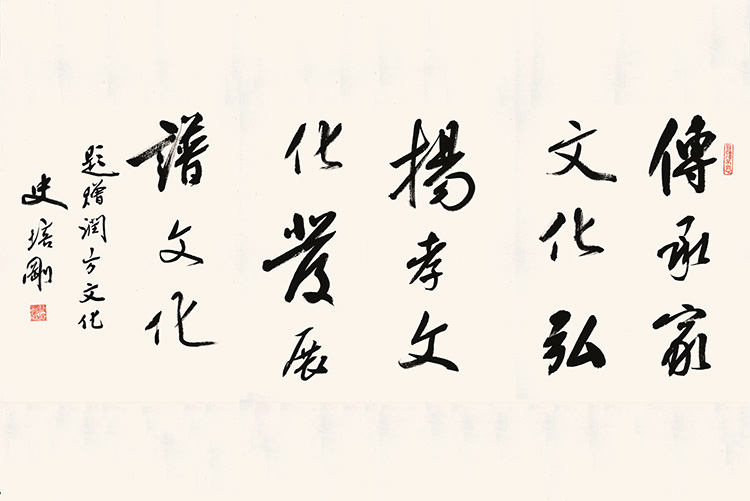 傳承家
文化弘
揚孝文
化發展
譜文化
題贈潤方文化
史培剛